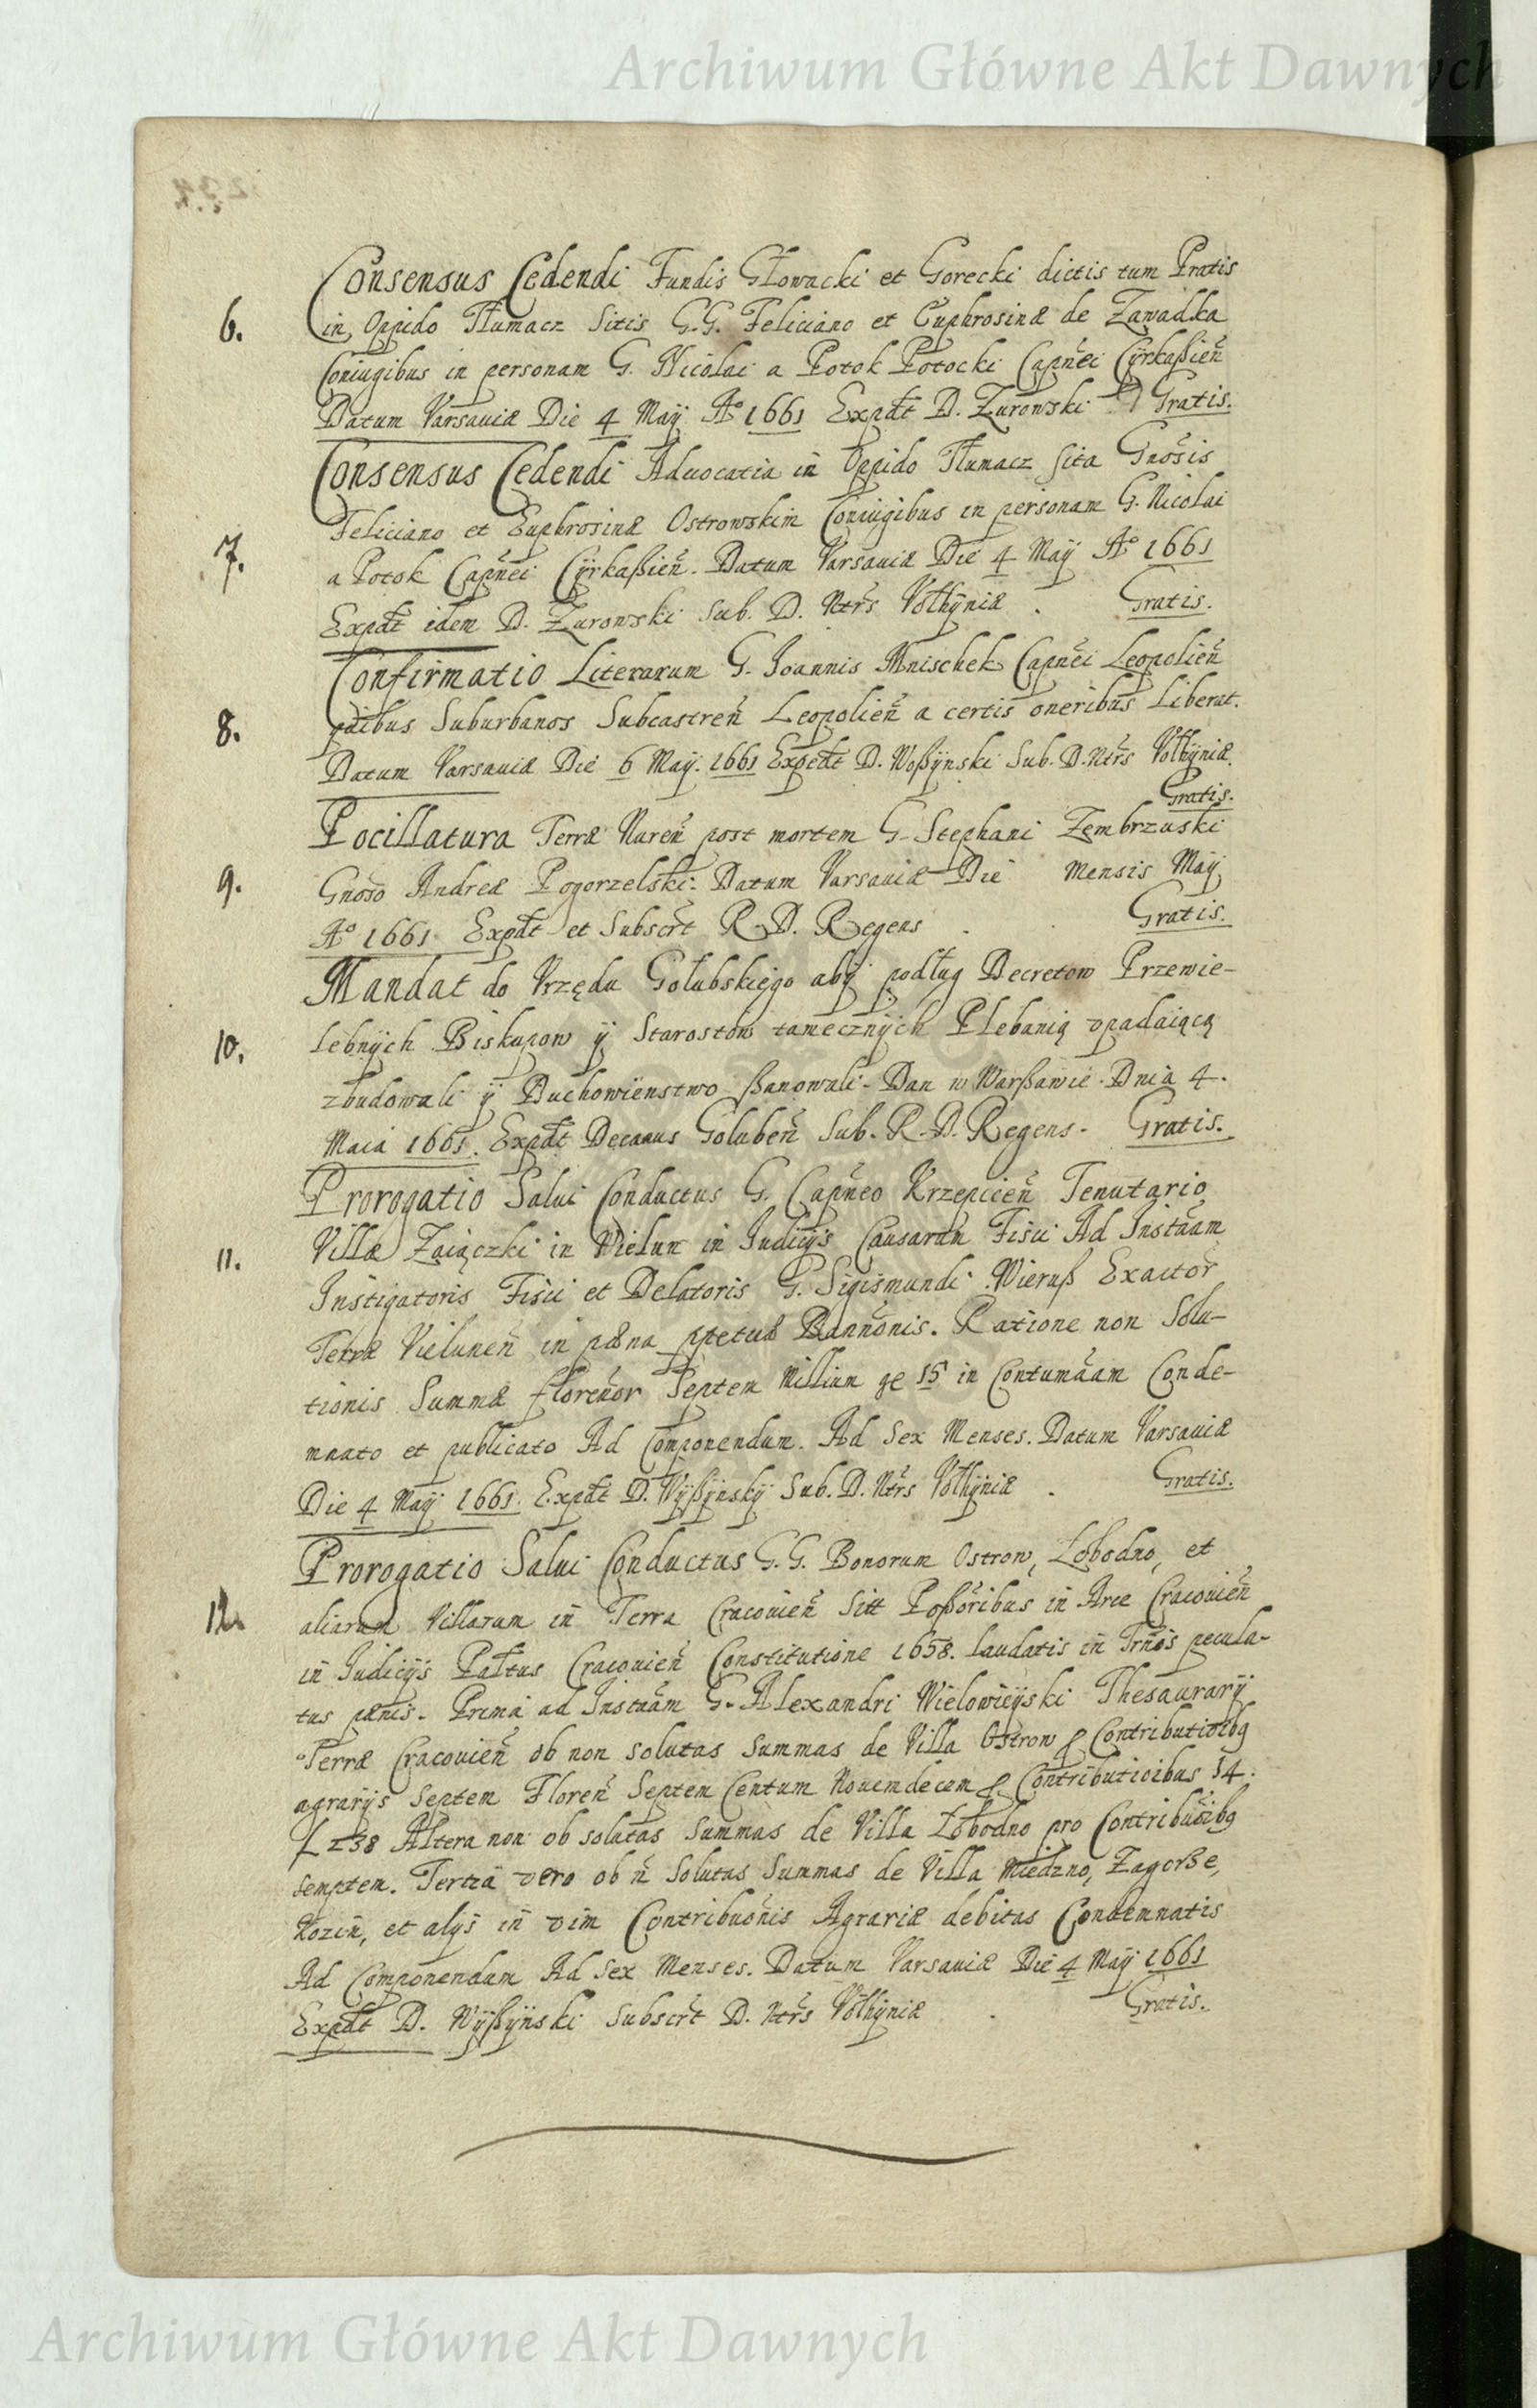 Archiwum Główne Akt Dawnych
Consensus Cedendi Fundis Głowacki et Gorecki dictis tum Pratis
6. in Oppido Tłumacz Sitis G.G. Feliciano et Euphrosinæ de Zawadka
Coniugibus in personam G. Nicolai a Potok Potocki Capñei Cÿrkaßień
Datum Varsaviæ Die 4 Maÿ Aº 1661 Expdt D. Zurowski Gratis.
Consensus Cedendi Advocatia in Oppido Tłumacz Sita Gnosis
Feliciano et Euphrosinæ Ostrowskim Coniugibus in personam G. Nicolai
7. a Potok Capñei Cÿrkaßień. Datum Varsaviæ Die 4 Maÿ Aº 1661
Expdt idem D. Zurowski Sub. D. Ntrs Volhÿniæ . Gratis.
Confirmatio Literarum G. Joannis Mnischek Capñei Leopolień
8. quibus Suburbanos Subcastreñ Leopolień a certis oneribus Liberat.
Datum Varsaviæ Die 6 Maÿ. 1661 Expedt D. Woßÿnski Sub. D. Ntrs Volhÿniæ.
Gratis.
Pocillatura Terræ Nureñ post mortem G. Stephani Zembrzuski
9. Gnoso Andreæ Pogorzelski. Datum Varsaviæ Die mensis Maÿ
Aº 1661 Expdt et Subscrt R. D. Regens . Gratis.
Mandat do Vrzędu Gołubskiego abÿ podług Decretow Przewie-
10. lebnÿch Biskupow ÿ Starostow tamecznÿch Plebanią vpadaiącą
zbudowali ÿ Duchowienstwo ßanowali. Dan w Warßawie. Dnia 4.
Maia 1661. Expdt Decanus Golubeñ Sub. R. D. Regens. Gratis.
Prorogatio Salvi Conductus G. Capñeo Krzepicień Tenutario
11. Villæ Zaiączki in Wielun in Judicÿs Causarum Fisci Ad Instãam
Instigatoris Fisci et Delatoris G. Sigismundi Wieruß Exactor
Terræ Vieluneñ in pæna ppetuæ Bannõnis. Ratione non Solu-
tionis Summæ florenor Septem Millium ge 15 in Contumãam Conde-
mnato et publicato Ad Componendum. Ad Sex Menses. Datum Varsaviæ
Die 4 Maÿ 1661. Expdt D. Wÿßÿnskÿ Sub. D. Ntrs Volhÿniæ . Gratis.
Prorogatio Salvi Conductus G.G. Bonorum Ostrow, Łobodno, et
12. aliarum Villarum in Terra Cracovień Sitt Poßoribus in Arce Cracovień
in Judicÿs Paltus Cracovień Constitutione 1658. laudatis in Trnõs pecula-
tus pænis. Prima ad Instãam G. Alexandri Wielowieÿski Thesaurarÿ
Terræ Cracovień ob non solutas Summas de Villa Ostrow p Contributioibq
agrarÿs Septem Floreñ Septem Centum Novemdecem p Contributioibus 14.
f 238 Altera non ob solutas Summas de Villa Łobodno pro Contribuõibq
Sempten. Tertia vero ob ñ Solutas Summas de Villa Miedzno, Zagorße,
Kozin, et alÿs in vim Contribuõnis Agrariæ debitas Condemnatis
Ad Componendum Ad Sex Menses. Datum Varsaviæ Die 4 Maÿ 1661
Expdt D. Wÿßÿnski Subscrt D. Ntrs Volhÿniæ . Gratis.
Archiwum Główne Akt Dawnych